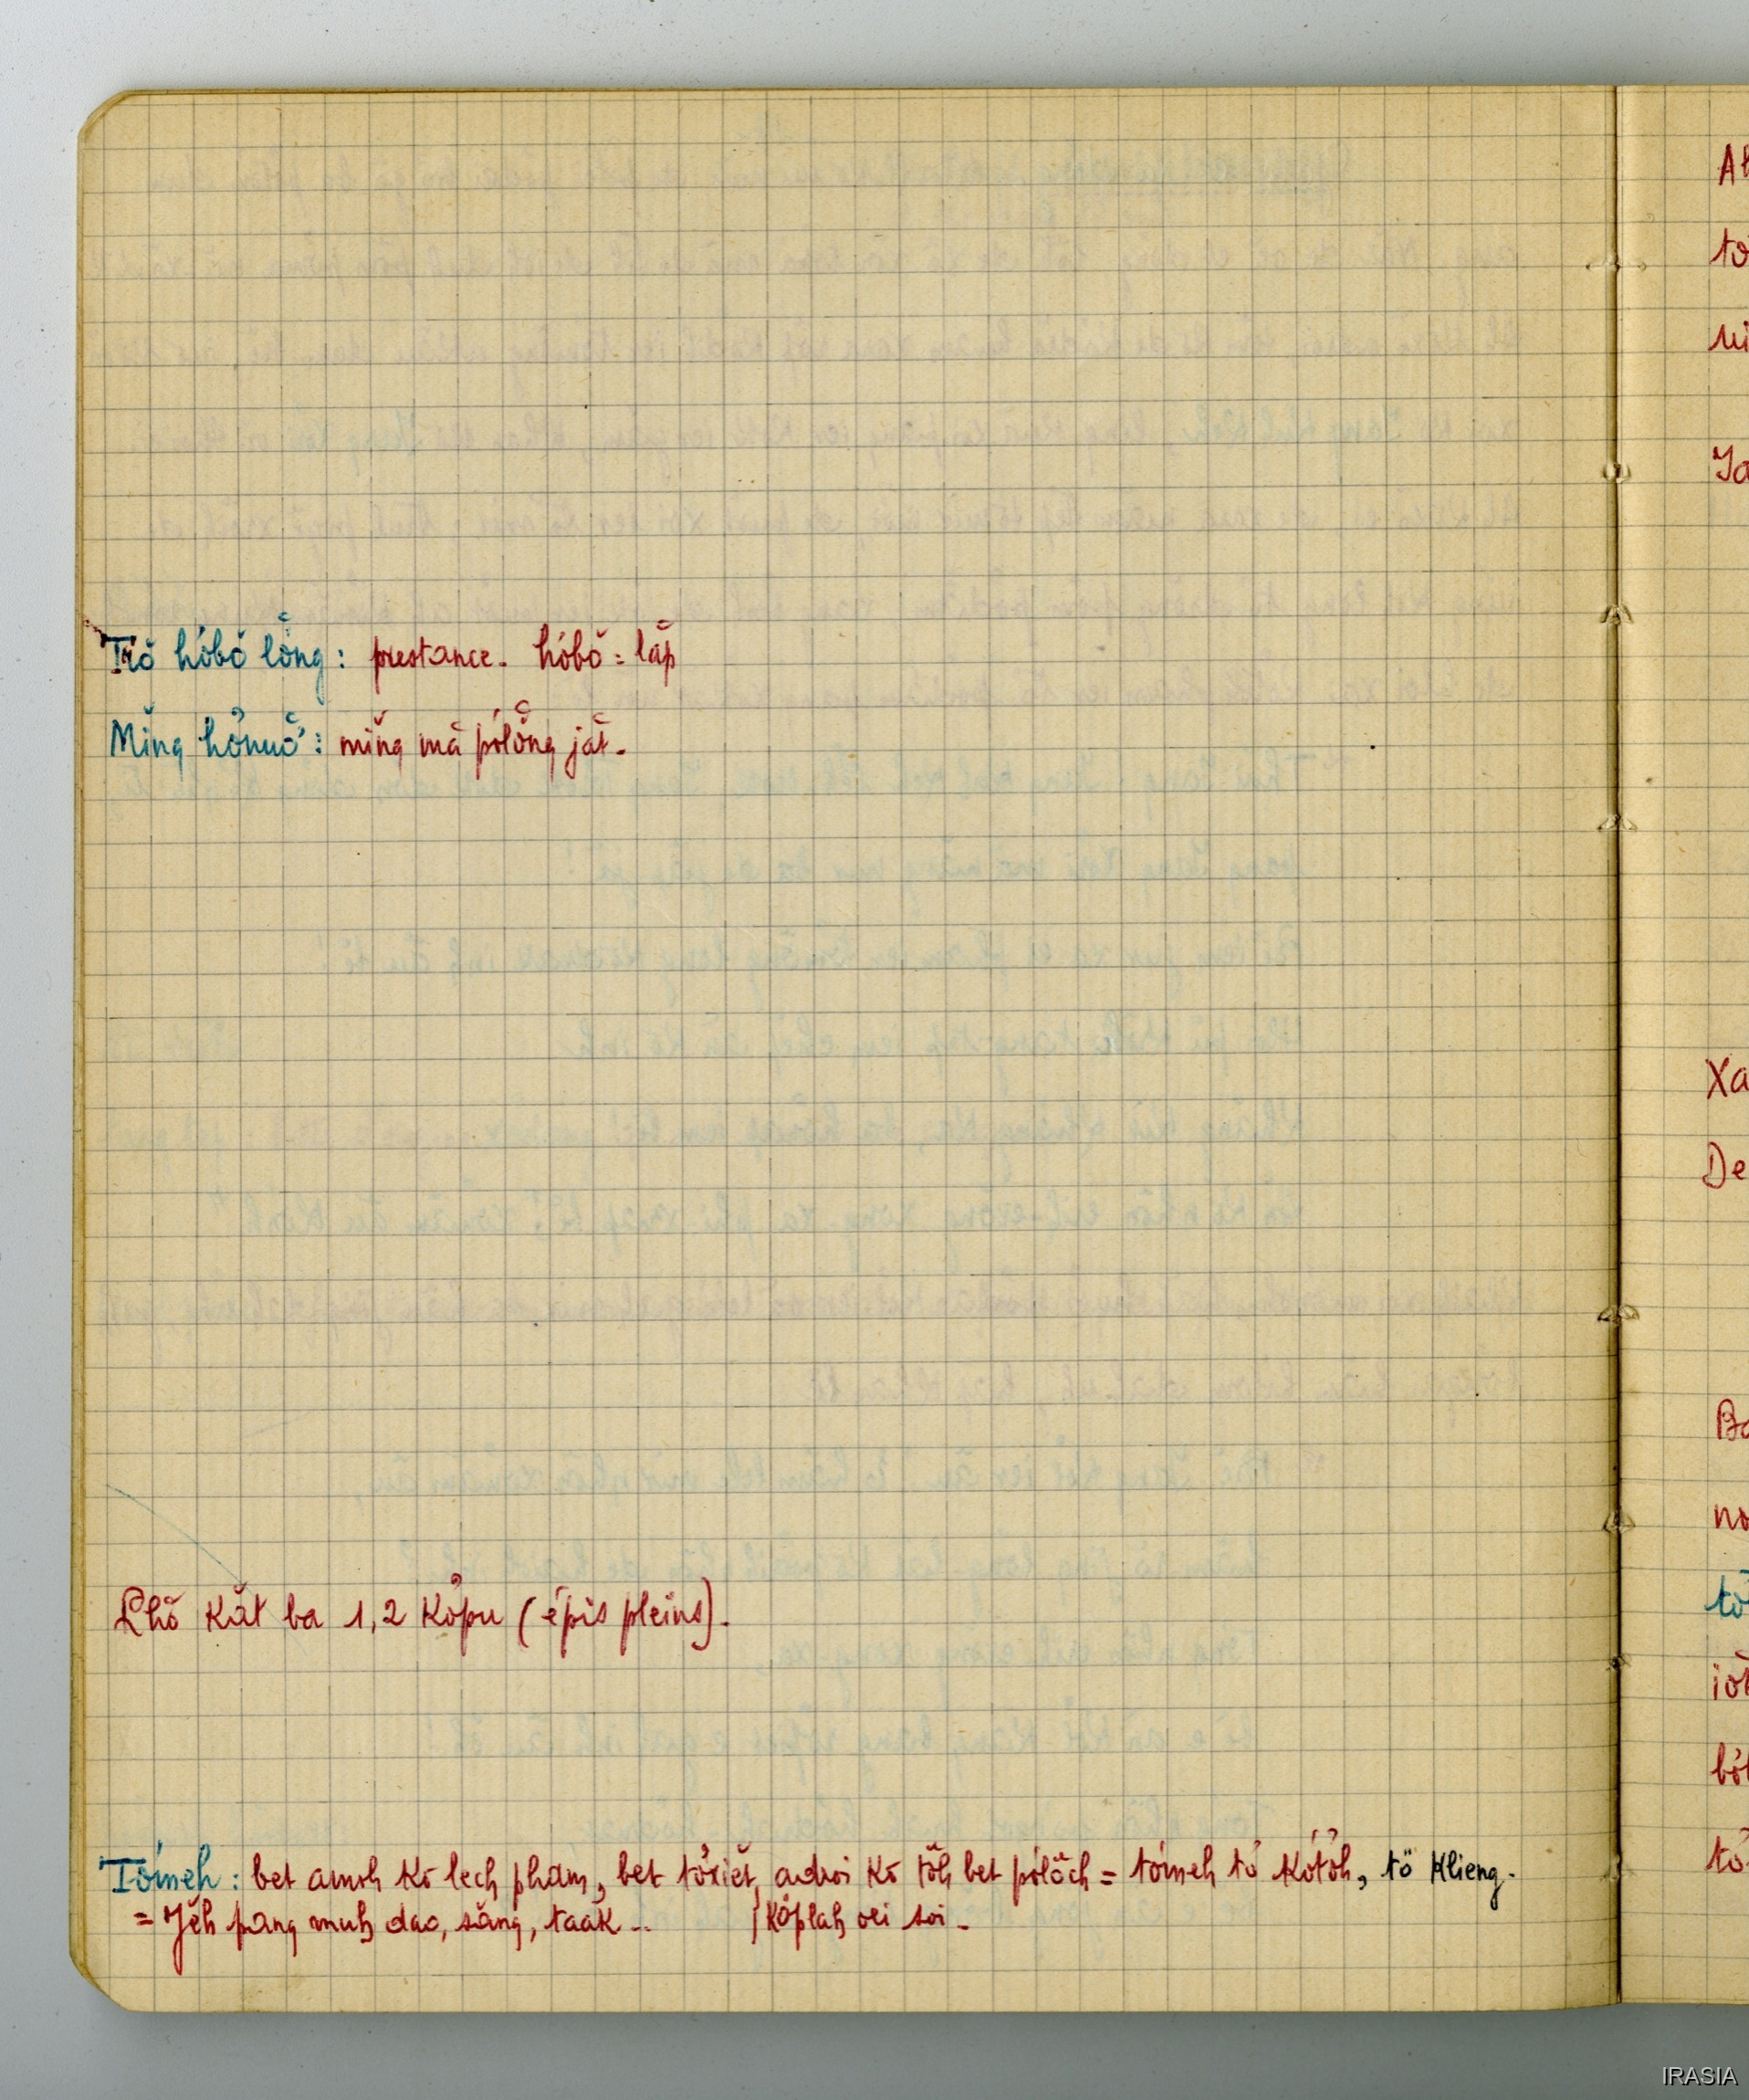 Trŏ hơbơ̆ lơ̆ng : prestance. hơbơ̆ = lăp
Mĭng hơnuơ̆ : mĭng mă pơlơ̆ng jăt.
Lhŏ Kăt ba 1, 2 Kơpu (épis pleins).
Tơmeh : bet amoh kơ lech pham, bet tơriĕt, adroi kơ tŏh bet pơlŏch = tơmeh tơ Kơtŏh, tơ Klieng.
= Jĕh pang muh, dao, săng, taak .. / Kơplah oei soi.
At
tơ
ni
Ja
Xa
De
Ba
no
tơ
iŏ
bơ
tơ
IRASIA